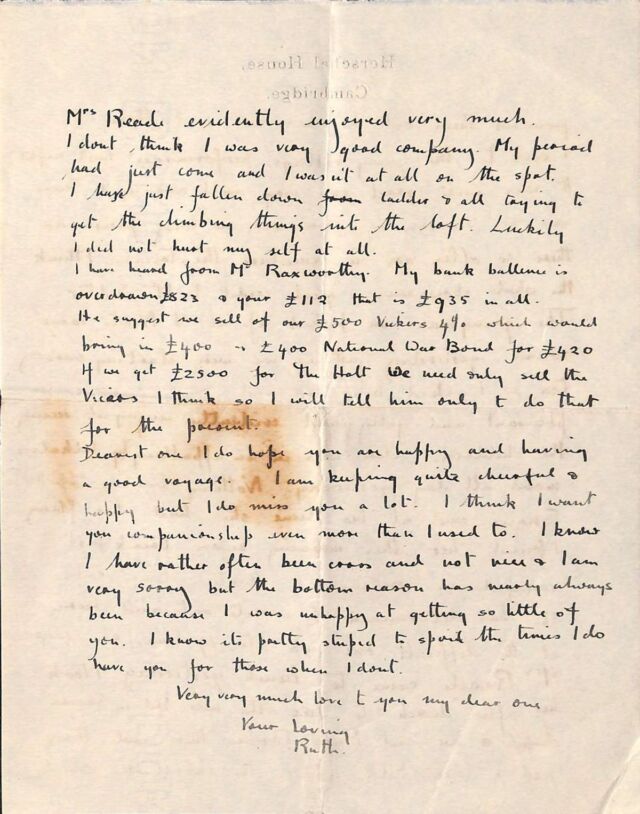 Herschel House,
Cambridge.
Mrs Reade evidently enjoyed very much.
I dont think I was very good company. My period
had just come and I wasn't at all on the spot.
I have just fallen down from ladder & all trying to
get the climbing things into the loft. Luckily
I did not hurt my self at all.
I have heard from Mr Raxworthy. My bank ballence is
overdrawn £823 & your £112 that is £935 in all.
He suggest we sell of our £500 Vickers 4% which would
bring in £400 & £400 National War Bond for £420
If we get £2500 for The Holt we need only sell the
Vicars I think so I will tell him only to do that
for the present.
Dearest one I do hope you are happy and having
a good voyage. I am keeping quite cheerful &
happy but I do miss you a lot. I think I want
you companionship even more than I used to. I know
I have rather often been cross and not nice & I am
very sorry but the bottom reason has nearly always
been because I was unhappy at getting so little of
you. I know its pretty stupid to spoil the times I do
have you for those when I dont.
Very very much love to you my dear one
Your Loving
Ruth.